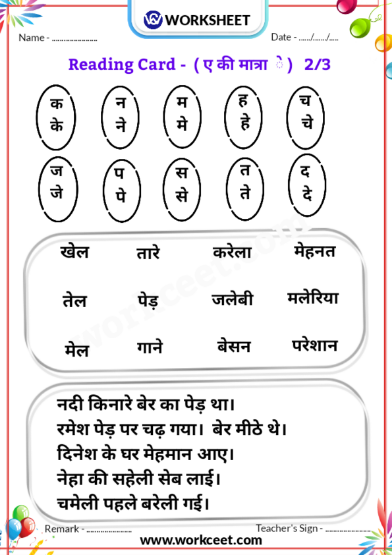 WORKSHEET
Name - ........................ Date - ....../....../.....
Reading Card - ( ए की मात्रा े ) 2/3
क न म ह च
के ने मे हे चे
ज प स त द
जे पे से ते दे
खेल तारे करेला मेहनत
तेल पेड़ जलेबी मलेरिया
मेल गाने बेसन परेशान
नदी किनारे बेर का पेड़ था।
रमेश पेड़ पर चढ़ गया। बेर मीठे थे।
दिनेश के घर मेहमान आए।
नेहा की सहेली सेब लाई।
चमेली पहले बरेली गई।
Remark - ........................ Teacher's Sign - ........................
www.workceet.com